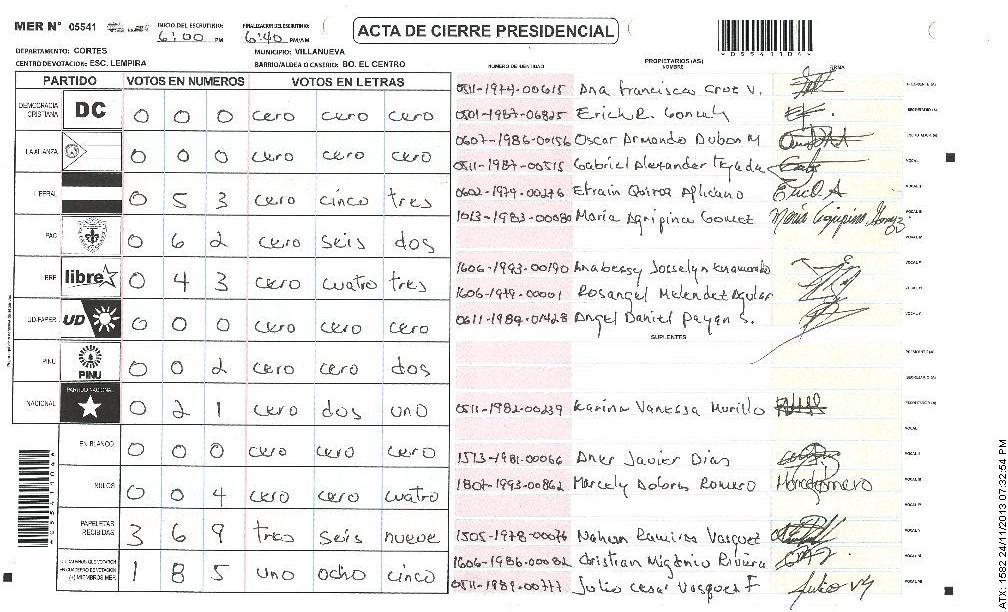 MER N° 05541 INICIO DEL ESCRUTINIO: 6:00 PM FINALIZACION DEL ESCRUTINIO: 6:40 PM/AM
ACTA DE CIERRE PRESIDENCIAL
DEPARTAMENTO: CORTES MUNICIPIO: VILLANUEVA
CENTRO DE VOTACION: ESC. LEMPIRA BARRIO/ALDEA O CASERIO: BO. EL CENTRO
PARTIDO VOTOS EN NUMEROS VOTOS EN LETRAS
DEMOCRACIA CRISTIANA DC 0 0 0 cero cero cero
LA ALIANZA 0 0 0 cero cero cero
LIBERAL 0 5 3 cero cinco tres
PAC 0 6 2 cero seis dos
libre 0 4 3 cero cuatro tres
UD/FAPER UD 0 0 0 cero cero cero
PINU PINU 0 0 2 cero cero dos
NACIONAL PARTIDO NACIONAL 0 2 1 cero dos uno
EN BLANCO 0 0 0 cero cero cero
NULOS 0 0 4 cero cero cuatro
PAPELETAS RECIBIDAS 3 6 9 tres seis nueve
(+) MIEMBROS MER 1 8 5 uno ocho cinco
NUMERO DE IDENTIDAD PROPIETARIOS (AS) NOMBRE FIRMA
0511-1974-00615 Ana Francisca Cruz V.
0501-1987-06825 Erich R.
0607-1986-00156 Oscar Armando Dubon M
0511-1987-00515 Gabriel Alexander Tejada
0602-1979-00276 Efrain
1013-1983-00080 Maria Agripina Gomez
1606-1993-00190 Josselyn
1606-1979-00001 Rosangel Melendez Aguilar
0611-1989-01428 Angel Daniel Payan S.
SUPLENTES
0511-1982-00239 Karina Vanessa Murillo
1513-1981-00066 Javier Dias
1807-1993-00862 Marcely Dolores Romero
1505-1978-00076 Nahun Ramirez Vasquez
1606-1986-00082 Cristian Migdonio Rivera
0511-1989-00777 Julio Cesar Vasquez F
ATX: 1582 24/11/2013 07:32:54 PM